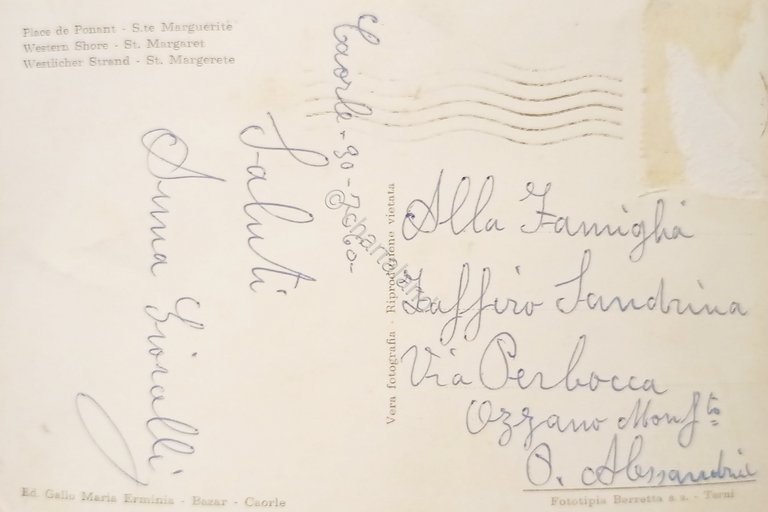 Place de Ponant - S.te Marguerite
Western Shore - St. Margaret
Westlicher Strand - St. Margerete
Caorle - 30-7-60-
Saluti
Anna
Vera fotografia - Riproduzione vietata
Alla Famiglia
Zaffiro Sandrina
Via Perbocca
Ozzano Monf.to
P. Alessandria
Ed. Gallo Maria Erminia - Bazar - Caorle
Fototipia Berretta s.a. - Terni